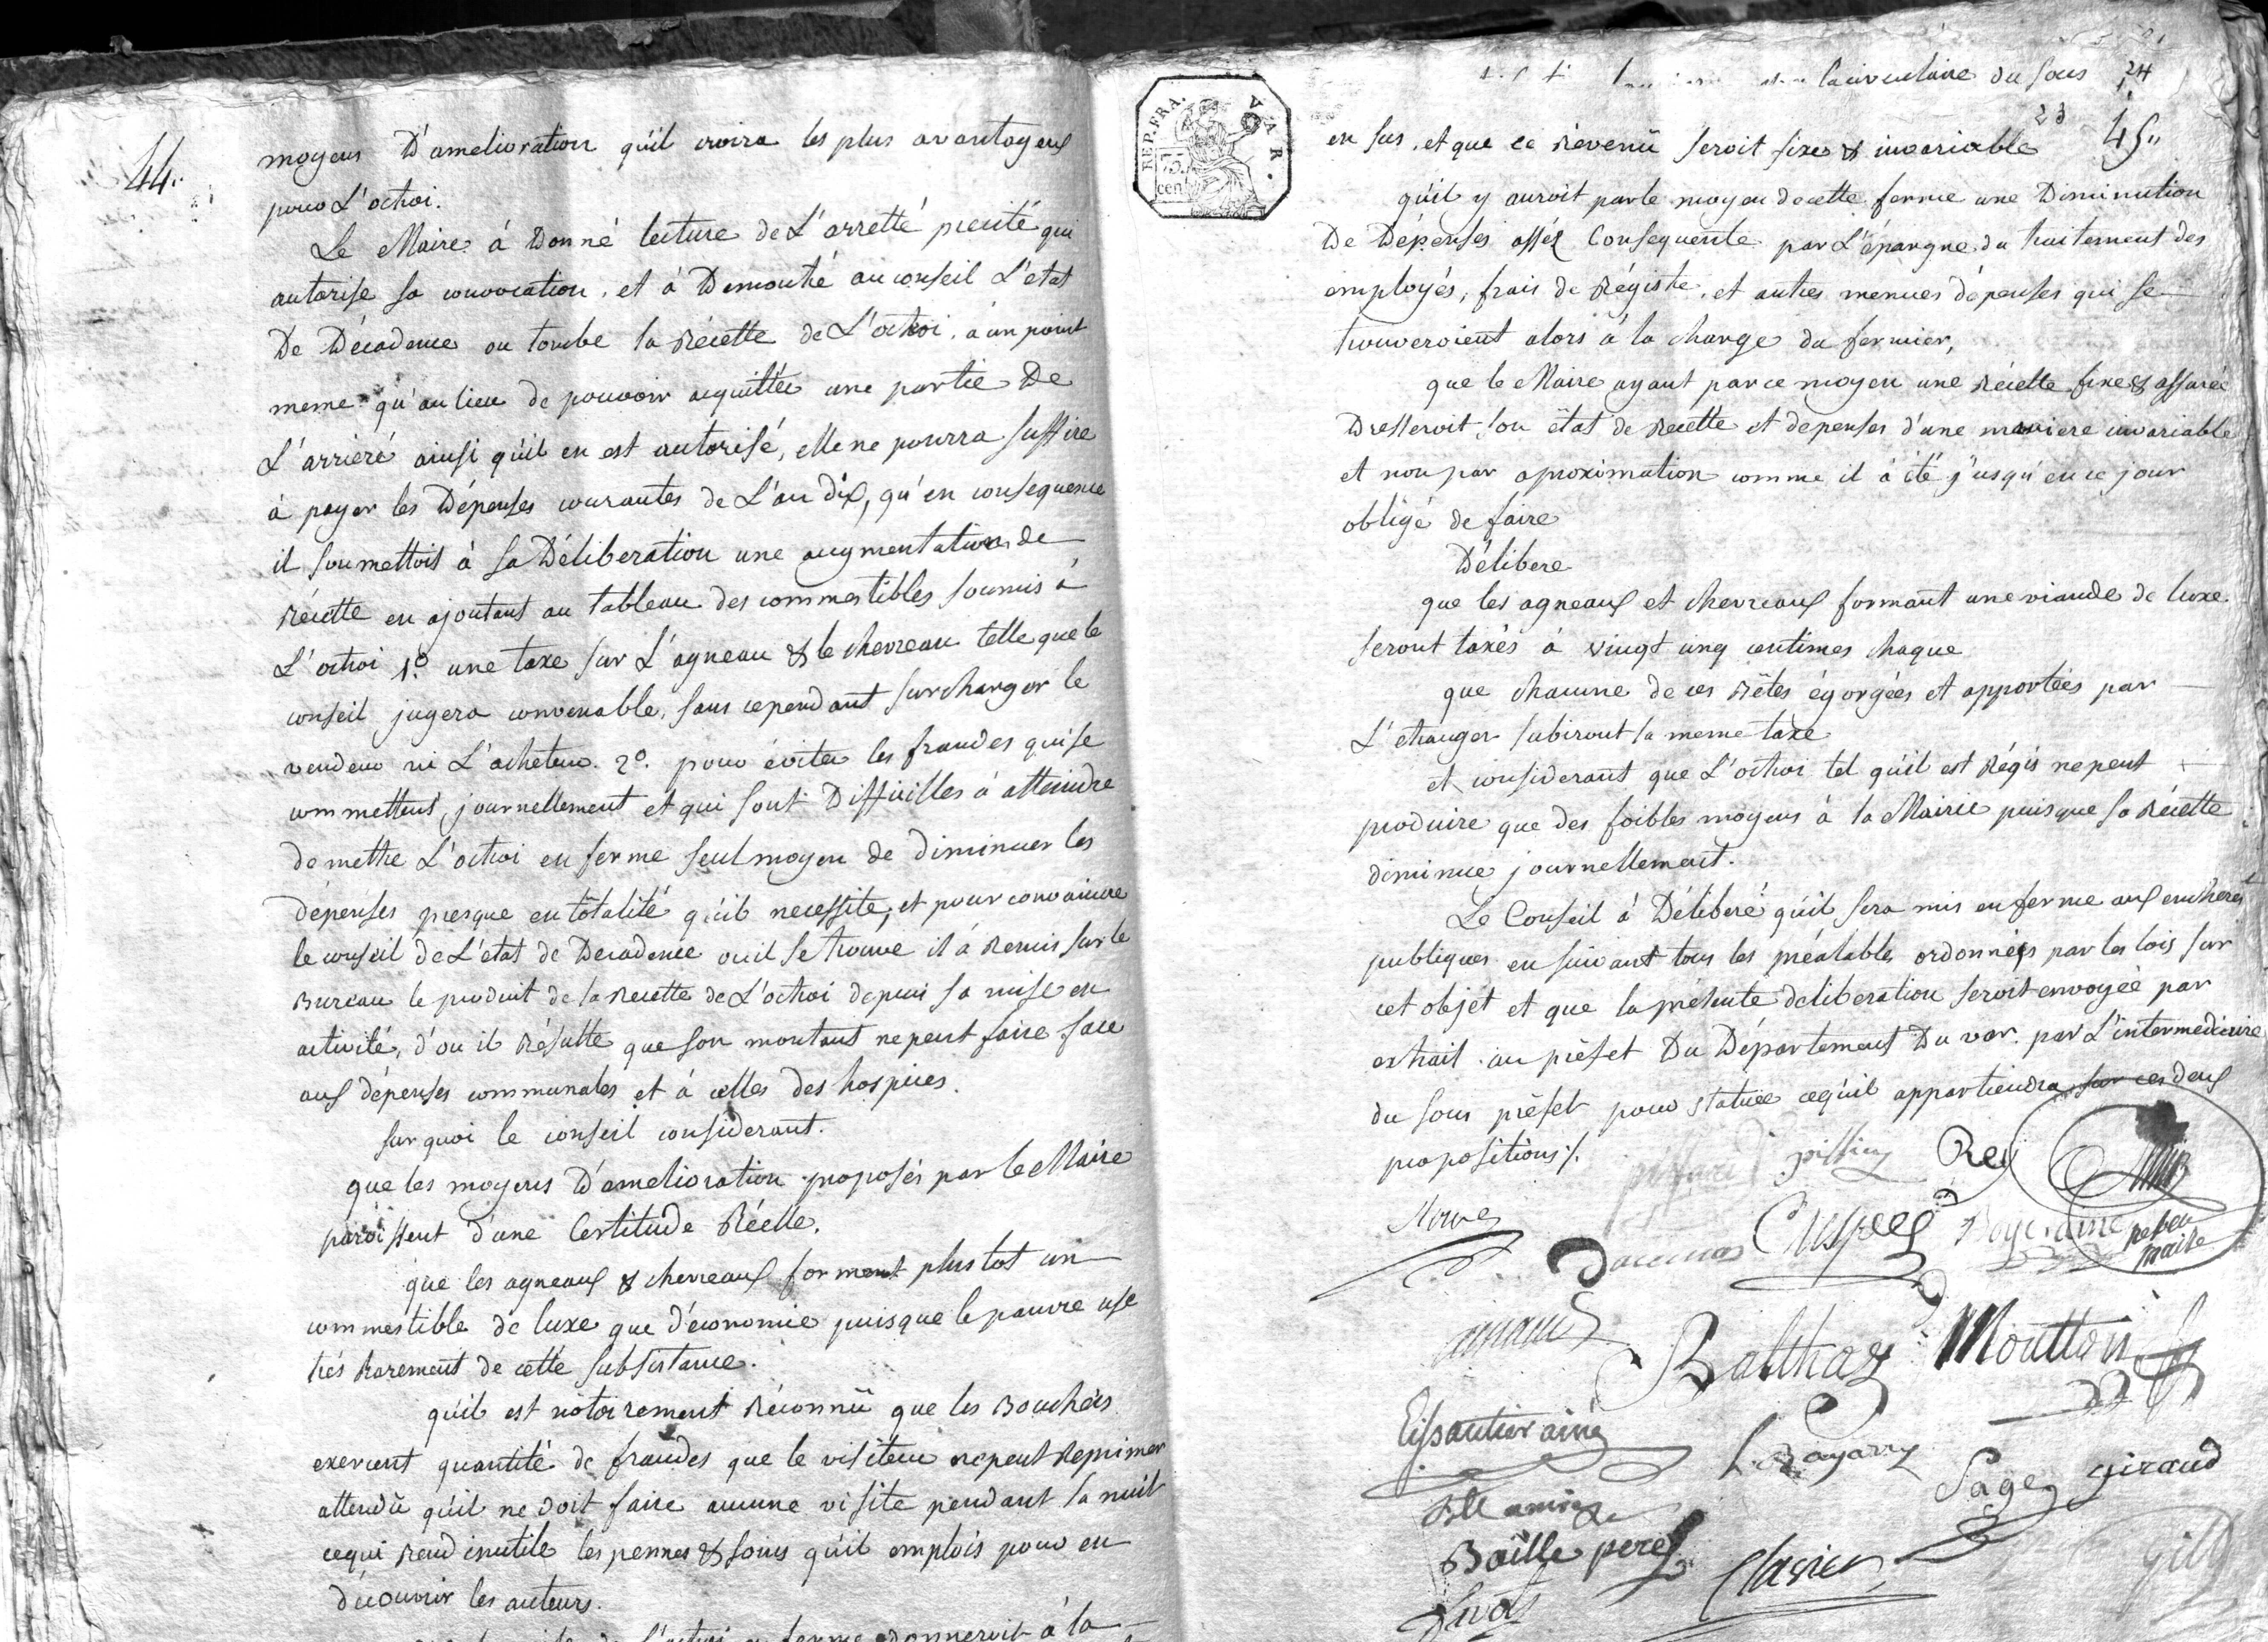 44.
moyens D'amelioration qu'il croira les plus avantageux
pour L'octroi.
Le Maire à Donné lecture de L'arretté précité qui
autorise sa convocation, et à Demontré au conseil L'etat
De Décadence ou tombe la Récette de L'octroi, a un point
meme qu'au lieu de pouvoir acquitter une partie De
L'arrieré ainsi qu'il en est autorisé, elle ne pourra suffire
à payer les Dépenses courantes de L'an dix, qu'en consequence
il soumettoit à sa Déliberation une augmentation de
Récette en ajoutant au tableau des commestibles soumis à
L'octroi 1º. une taxe sur L'agneau & le chevreau telle que le
conseil jugera convenable, sans cependant surcharger le
vendeur ni L'acheteur. 2º. pour éviter les fraudes qui se
commettent, journellement et qui sont Difficilles à atteindre
de mettre L'octroi en ferme seul moyen de diminuer les
dépenses presque en tôtalité qu'il necessite; et pour convaincre
le conseil de L'état de Decadence ou il se trouve il à Remis sur le
Bureau le produit de la Recette de L'octroi depuis sa mise en
activité, d'ou il Résulte que son montant ne peut faire face
aux dépenses communales et à celles des hospices.
sur quoi le conseil considerant.
que les moyens D'amelioration proposés par le Maire
paroissent d'une Certitude Réelle.
que les agneaux & chevreaux forment plus tot un
commestible de luxe que d'économie puisque le pauvre use
trés Rarement de cette subsistance.
qu'il est nôtoirement Réconnû que les Bouchers
exercent quantité de fraudes que le visiteur ne peut Reprimer
attendû qu'il ne doit faire aucune visite pendant la nuit
ce qui Rend inutile les pennes & soins qu'il emplois pour en
découvrir les auteurs.
L'octroi en ferme donneroit à la
REP. FRA. VAR.
75 cent
la circulaire du sous 24
23
en sus, et que ce Révenû seroit fixe & invariable 45.
qu'il y auroit par le moyen de cette ferme une Diminution
De Dépenses assez Consequente par L'épargne du traitement des
employés, frais de Régistre, et autres menues dépenses qui se
trouveroient alors à la charge du fermier,
que le Maire ayant par ce moyen une Récette fixe & assurée
Dresseroit son état de Recette et depenses d'une maniere invariable
et non par aproximation comme il à été j'usqu'en ce jour
obligé de faire
Délibere
que les agneaux et chevreaux formant une viande de luxe
seront taxés à vingt cinq centimes chaque
que chacune de ces Bêtes égorgées et apportées par
L'etranger subiront la meme taxe
et considerant que L'octroi tel qu'il est Régis ne peut
produire que des foibles moyens à la Mairie puisque sa Récette
diminue journellement.
Le Conseil à Déliberé qu'il sera mis en ferme aux encheres
publiques en suivant tous les préalables ordonnées par les lois sur
cet objet et que la présente deliberation seroit envoyée par
extrait au préfet Du Département Du var. par L'intermediaire
du sous préfet pour statuer ce qu'il appartiendra sur ces deux
propositions /.
Rey
Daumas
Crespel
Boyer ainé
maire
Balthaz Moutton
Eissautier ainé
Bayarry
Sage
Giraud
Baille pere
Clavier
Gild